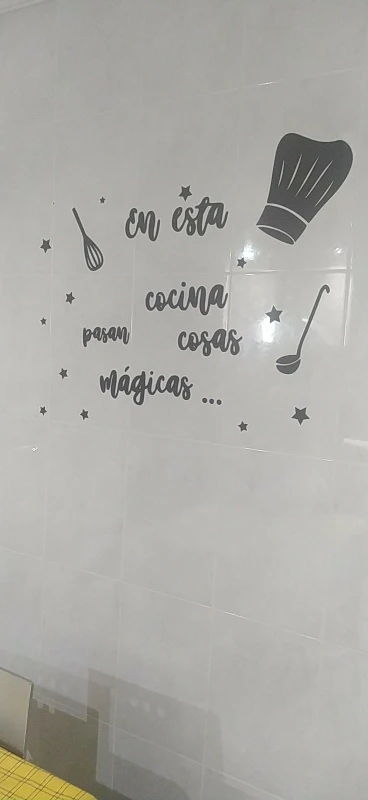 En esta
cocina
pasan cosas
mágicas ...